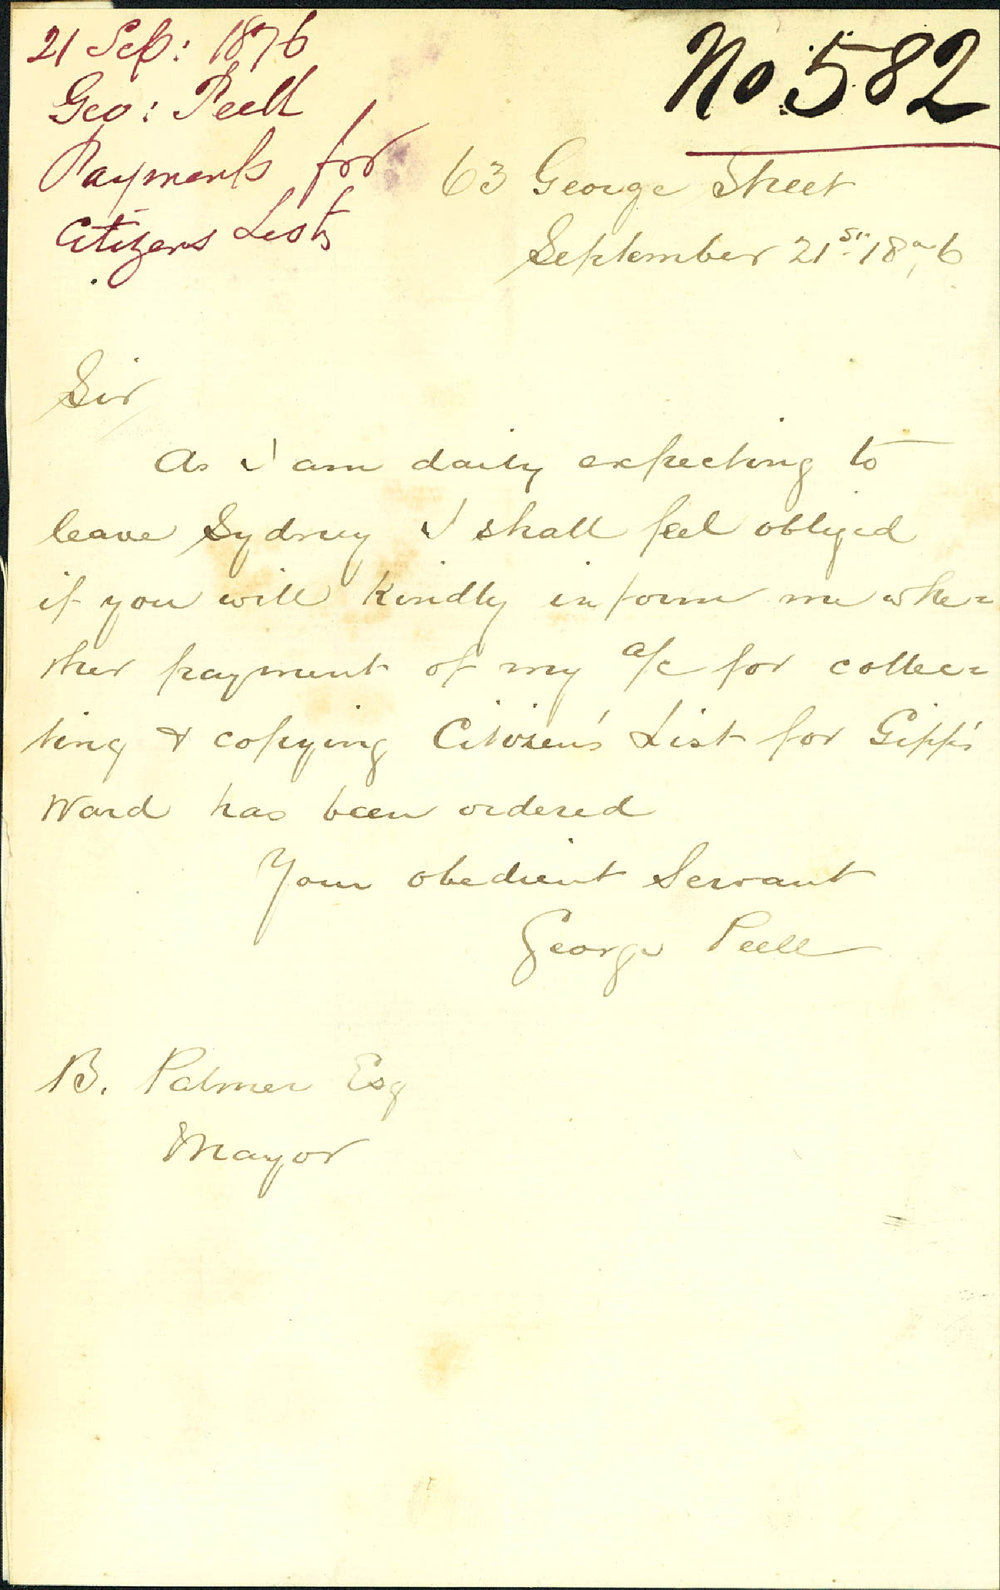 21 Sep: 1876
Geo: Peell
Payments for
Citizens Lists
No 582
63 George Street
September 21st 1876
Sir
As I am daily expecting to
leave Sydney I shall feel obliged
if you will kindly inform me whe=
ther payment of my a/c for collec=
ting & copying Citizen's List for Gipp's
Ward has been ordered
Your obedient Servant
George Peell
B. Palmer Esq
Mayor